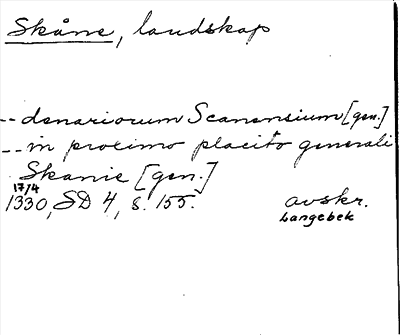 Skåne, landskap
-- denariorum Scanensium [gen.]
-- in proximo placito generali
Skanie [gen.]
17/4
1330, SD 4, s. 155. avskr.
Langebek